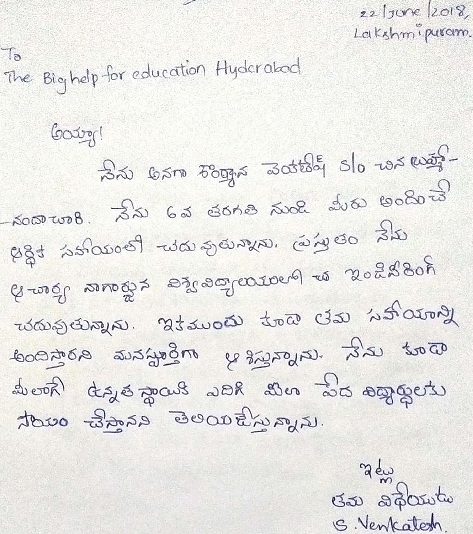 22/June/2018,
Lakshmipuram.
To
The Bighelp for education Hyderabad
అయ్యా!
నేను అనగా వెంకటేష్ S/o చిన లక్ష్మా-
-నందాచారి. నేను 6వ తరగతి నుండి మీరు అందించే
ఆర్థిక సహాయంతో చదువుతున్నాను. ప్రస్తుతం నేను
ఆచార్య నాగార్జున విశ్వవిద్యాలయంలో ఇంజినీరింగ్
చదువుతున్నాను. ఇకముందు కూడా తమ సహాయాన్ని
అందిస్తారని మనస్ఫూర్తిగా ఆశిస్తున్నాను. నేను కూడా
మీలాగే ఉన్నత స్థాయికి ఎదిగి మీలా పేద విద్యార్థులకు
సాయం చేస్తానని తెలియజేస్తున్నాను.
ఇట్లు
తమ విధేయుడు
S. Venkatesh.